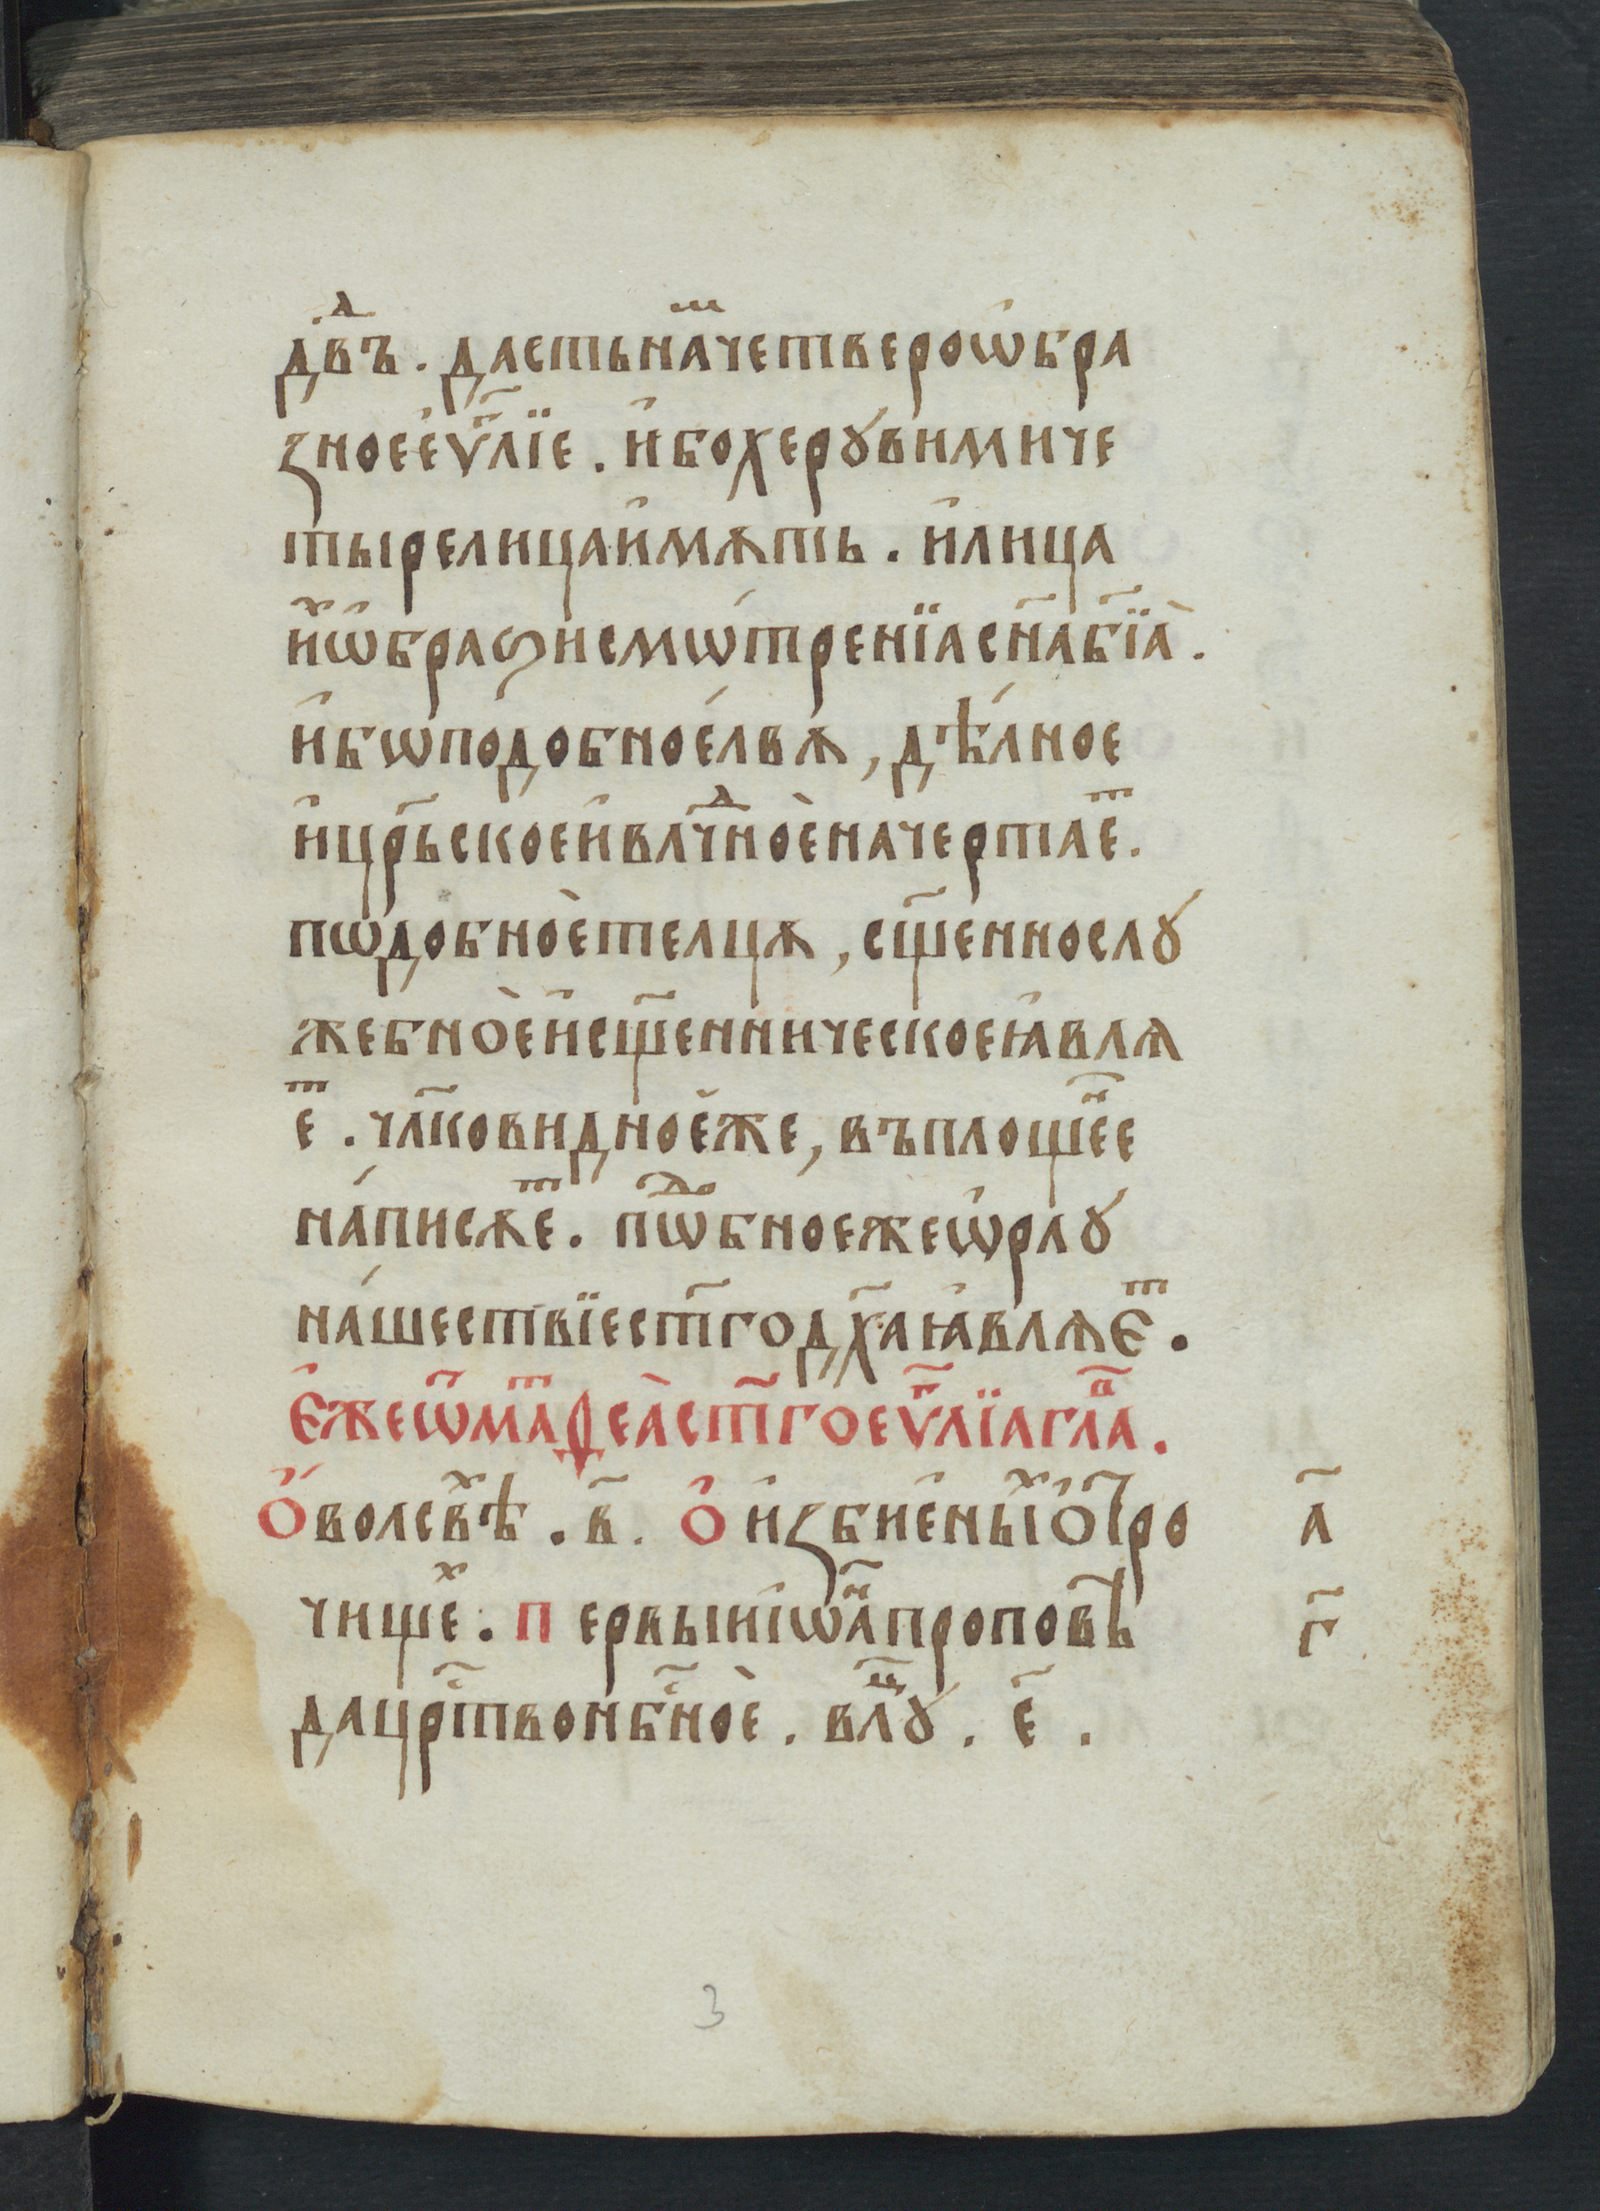 дв҃ⷣъ . дастьна́ⷨчетвероѡ҆бра
ꙁноее҆ѵⷢ҇лїе . и҆бохерꙋвимиче
тырелицаи҆мѫть . и҆лица
и҆ⷯѡ҆браꙃисмѡ́тренїасн҃аб҃їа̀ .
и҆бѡподобноéлвѫ , дѣ́лное
и҆цр҃ьскоеи҆влⷣчноѐначертаеⷮ .
пѡдобноѐтелцѫ , сщ҃еннослꙋ
жебноѐи҆сщ҃енническоеꙗ҆влѧ
еⷮ . чл҃ковидноѐже , въплощеⷩ҇е
на́писꙋеⷮ . пѡⷣбноежеѡ҆рлꙋ
на́шествїест҃годх҃аꙗ҆влѧеⷮ .
Є҆жеѡⷮматⷴеа̀ст҃гоеѵⷢ҇лїаглⷡ҇а .
О҆волсвⷯѣ . в҃ . О҆ иꙁбие́ныⷯѻ҆тро
чищеⷯ . первыиі҆ѡⷩ҇апроповѣ
дацрⷭ҇твонбⷭ҇ноѐ . влⷣцꙋ . е҃ .
а҃
г҃
3